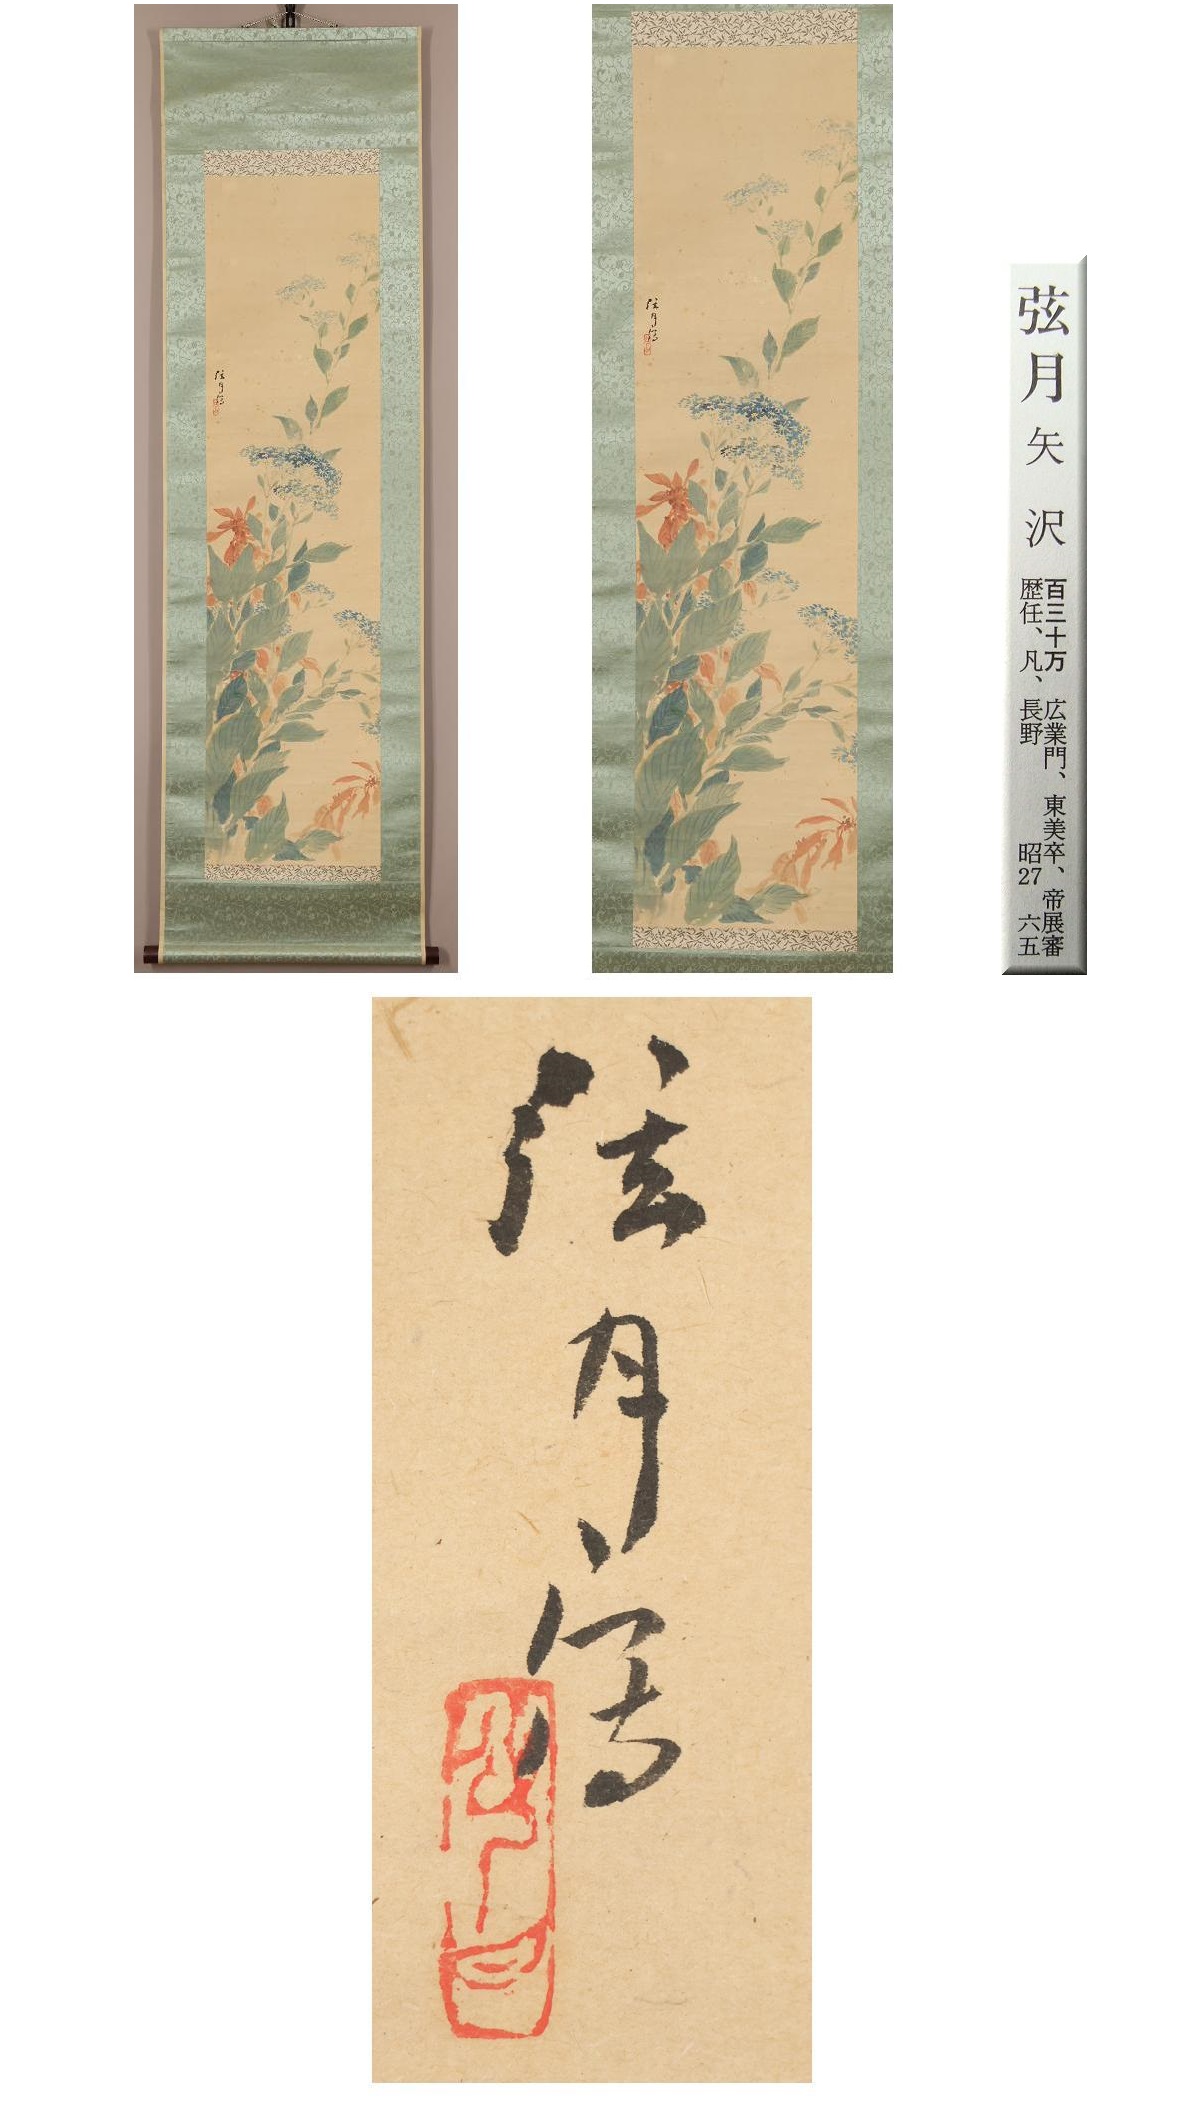 弦月寫
弦月寫
弦月 矢沢
百三十万 広業門、東美卒、帝展審
歴任、凡、長野 昭27 六五
弦月寫